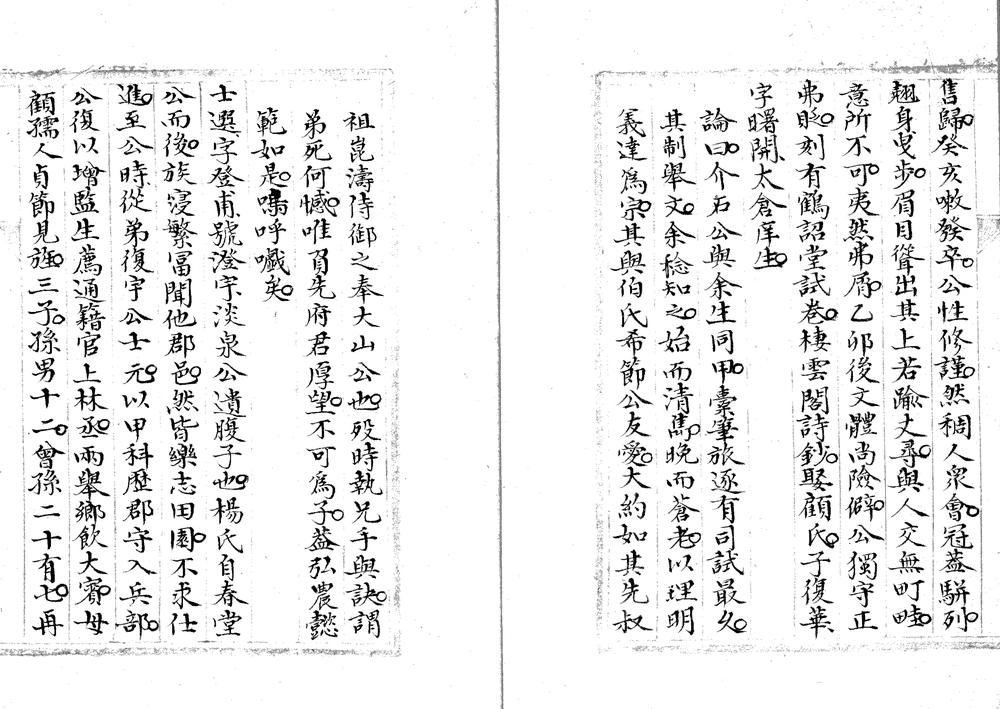 舊歸。癸亥嗽發卒。公性修謹。然稠人衆會。冠蓋駢列。
翹身曳步。眉目聳出其上若踰丈尋。與人交無町畦。
意所不可。夷然弗屑。乙卯後文體尚險僻。公獨守正
弗貶。刻有鶴詔堂試卷。棲雲閣詩鈔。娶顧氏。子復華
字曙開太倉庠生。
論曰。介石公與余生同甲。橐筆旅逐有司試最久。
其制舉文。余稔知之。始而清雋。晚而蒼老。以理明
義達爲宗。其與伯氏希節公友愛。大約如其先叔
祖崑濤侍御之奉大山公也。歿時執兄手與訣。謂
弟死何憾。唯負先府君厚望。不可爲子。蓋弘農懿
範如是。嗚呼戲矣。
士選字登甫號澄宇淡泉公遺腹子也。楊氏自春堂
公而後。族寖繁富聞他郡邑。然皆樂志田園。不求仕
進。至公時從弟復宇公士元。以甲科歷郡守入兵部。
公復以增監生薦通籍官上林丞。兩舉鄉飲大賓。母
顧孺人貞節見旌。三子。孫男十二。曾孫二十有七。再